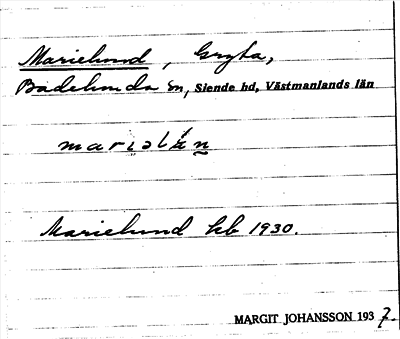 Marielund, Gryta,
Badelunda sn, Siende hd, Västmanlands län
Marielund kb 1930.
MARGIT JOHANSSON 1937.